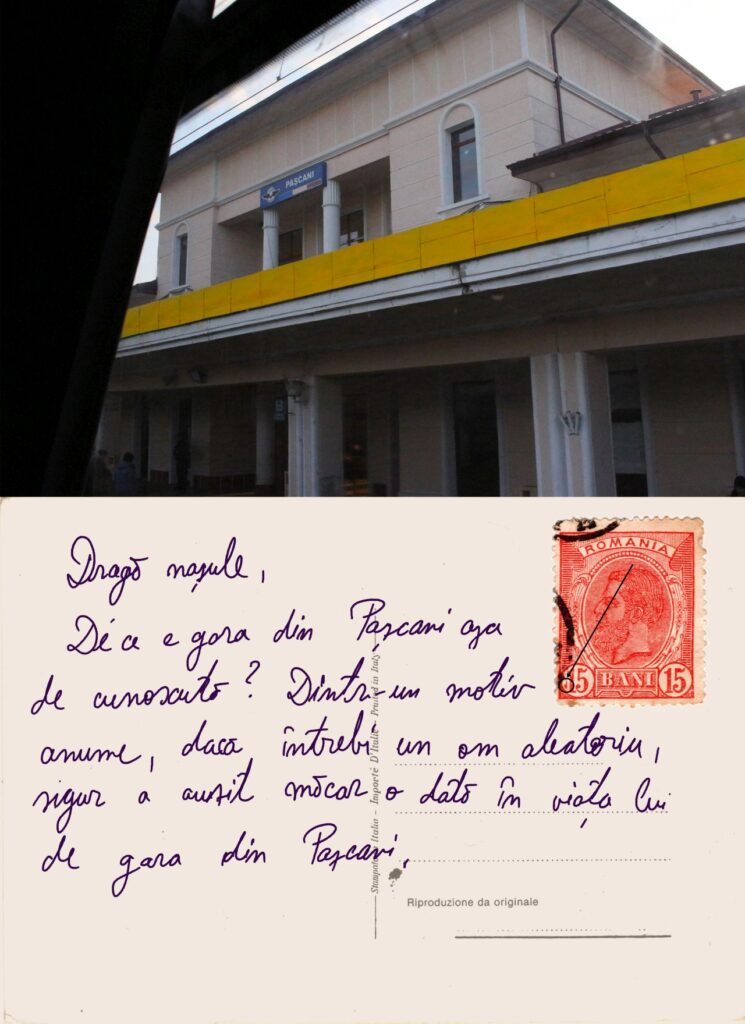 PAȘCANI
ROMANIA
15 BANI 15
Dragă nașule,
De ce e gara din Pașcani așa
de cunoscută? Dintr-un motiv
anume, daca întrebi un om aleatoriu,
sigur a auzit măcar o dată în viața lui
de gara din Pașcani.
Stampato in Italia - Importé D'Italie - Printed in Italy
Riproduzione da originale